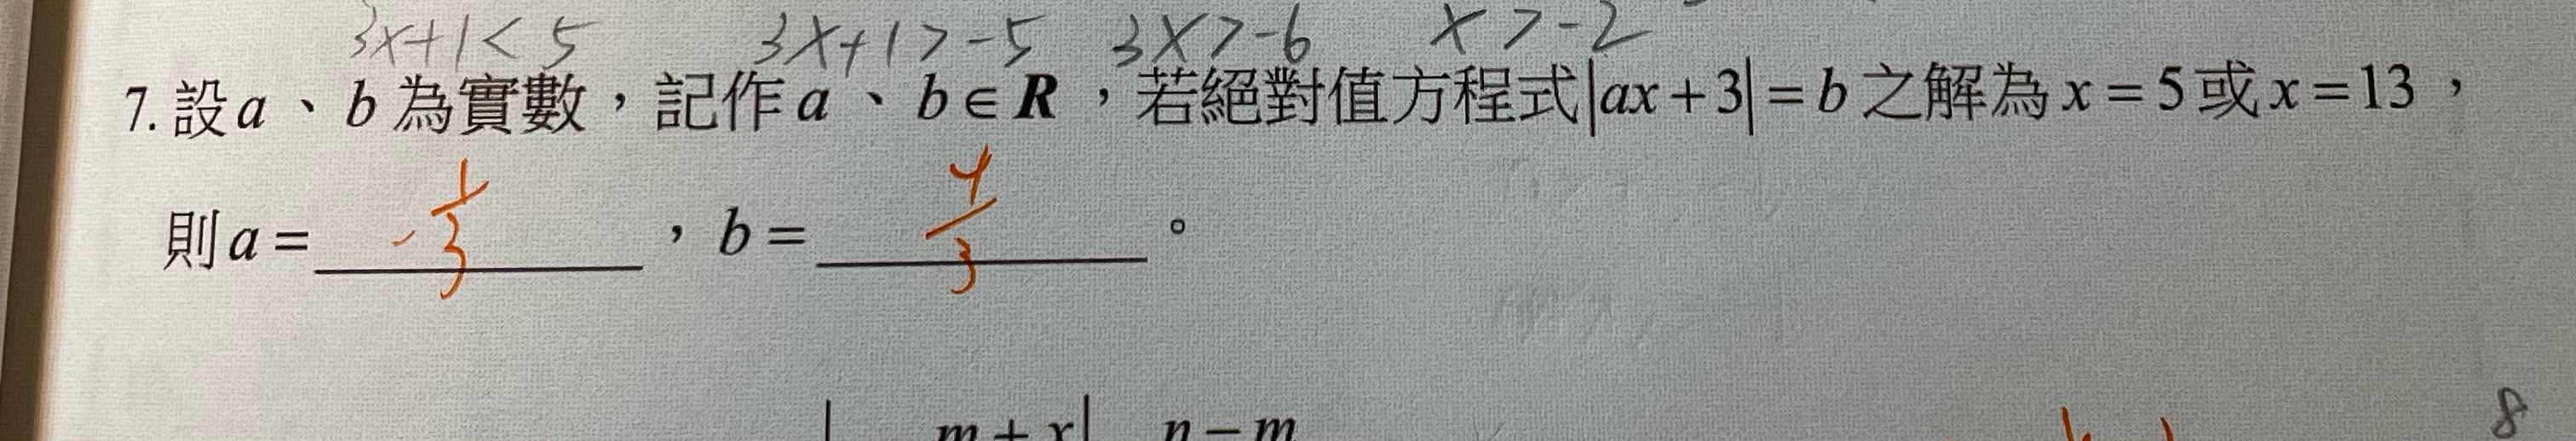 3x+1<5 3x+1>-5 3x>-6 x>-2
7.設a、b為實數，記作a、b∈R，若絕對值方程式|ax+3|=b之解為x=5或x=13，
則a= -1/3 ，b= 4/3 。
m+x| n-m
8